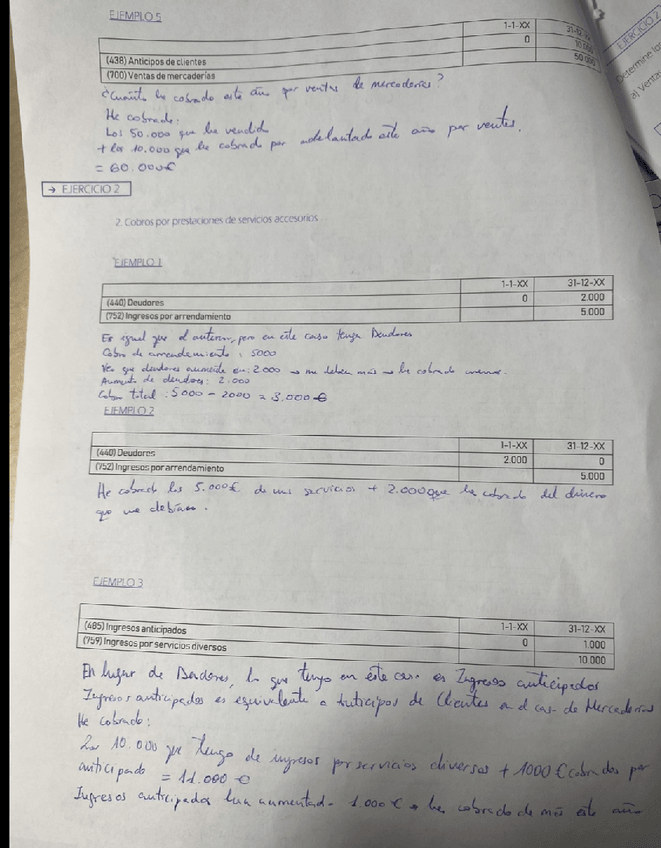 EJEMPLO 5
1-1-XX 31-12-XX
(438) Anticipos de clientes 0 10.000
(700) Ventas de mercaderías 50.000
¿Cuánto he cobrado este año por ventas de mercaderías?
He cobrado:
Los 50.000 que he vendido
+ los 10.000 que he cobrado por adelantado este año por ventas.
= 60.000€
→ EJERCICIO 2
2. Cobros por prestaciones de servicios accesorios
EJEMPLO 1
1-1-XX 31-12-XX
(440) Deudores 0 2.000
(752) Ingresos por arrendamiento 5.000
Es igual que el anterior, pero en este caso tengo Deudores
Cobro de arrendamiento: 5000
Veo que deudores aumenta en: 2000 → me deben más → he cobrado menos.
Aumento de deudores: 2.000
Cobro total: 5000 - 2000 = 3.000 €
EJEMPLO 2
1-1-XX 31-12-XX
(440) Deudores 2.000 0
(752) Ingresos por arrendamiento 5.000
He cobrado los 5.000€ de mis servicios + 2.000 que he cobrado del dinero
que me debían.
EJEMPLO 3
1-1-XX 31-12-XX
(485) Ingresos anticipados 0 1.000
(759) Ingresos por servicios diversos 10.000
En lugar de Deudores, lo que tengo en este caso es Ingresos anticipados
Ingresos anticipados es equivalente a Anticipos de Clientes en el caso de Mercaderías
He cobrado:
Los 10.000 que tengo de ingresos por servicios diversos + 1000 € cobrados por
anticipado = 11.000 €
Ingresos anticipados han aumentado 1.000 € → he cobrado de más este año
EJERCICIO 2
Determine
a) Ventas